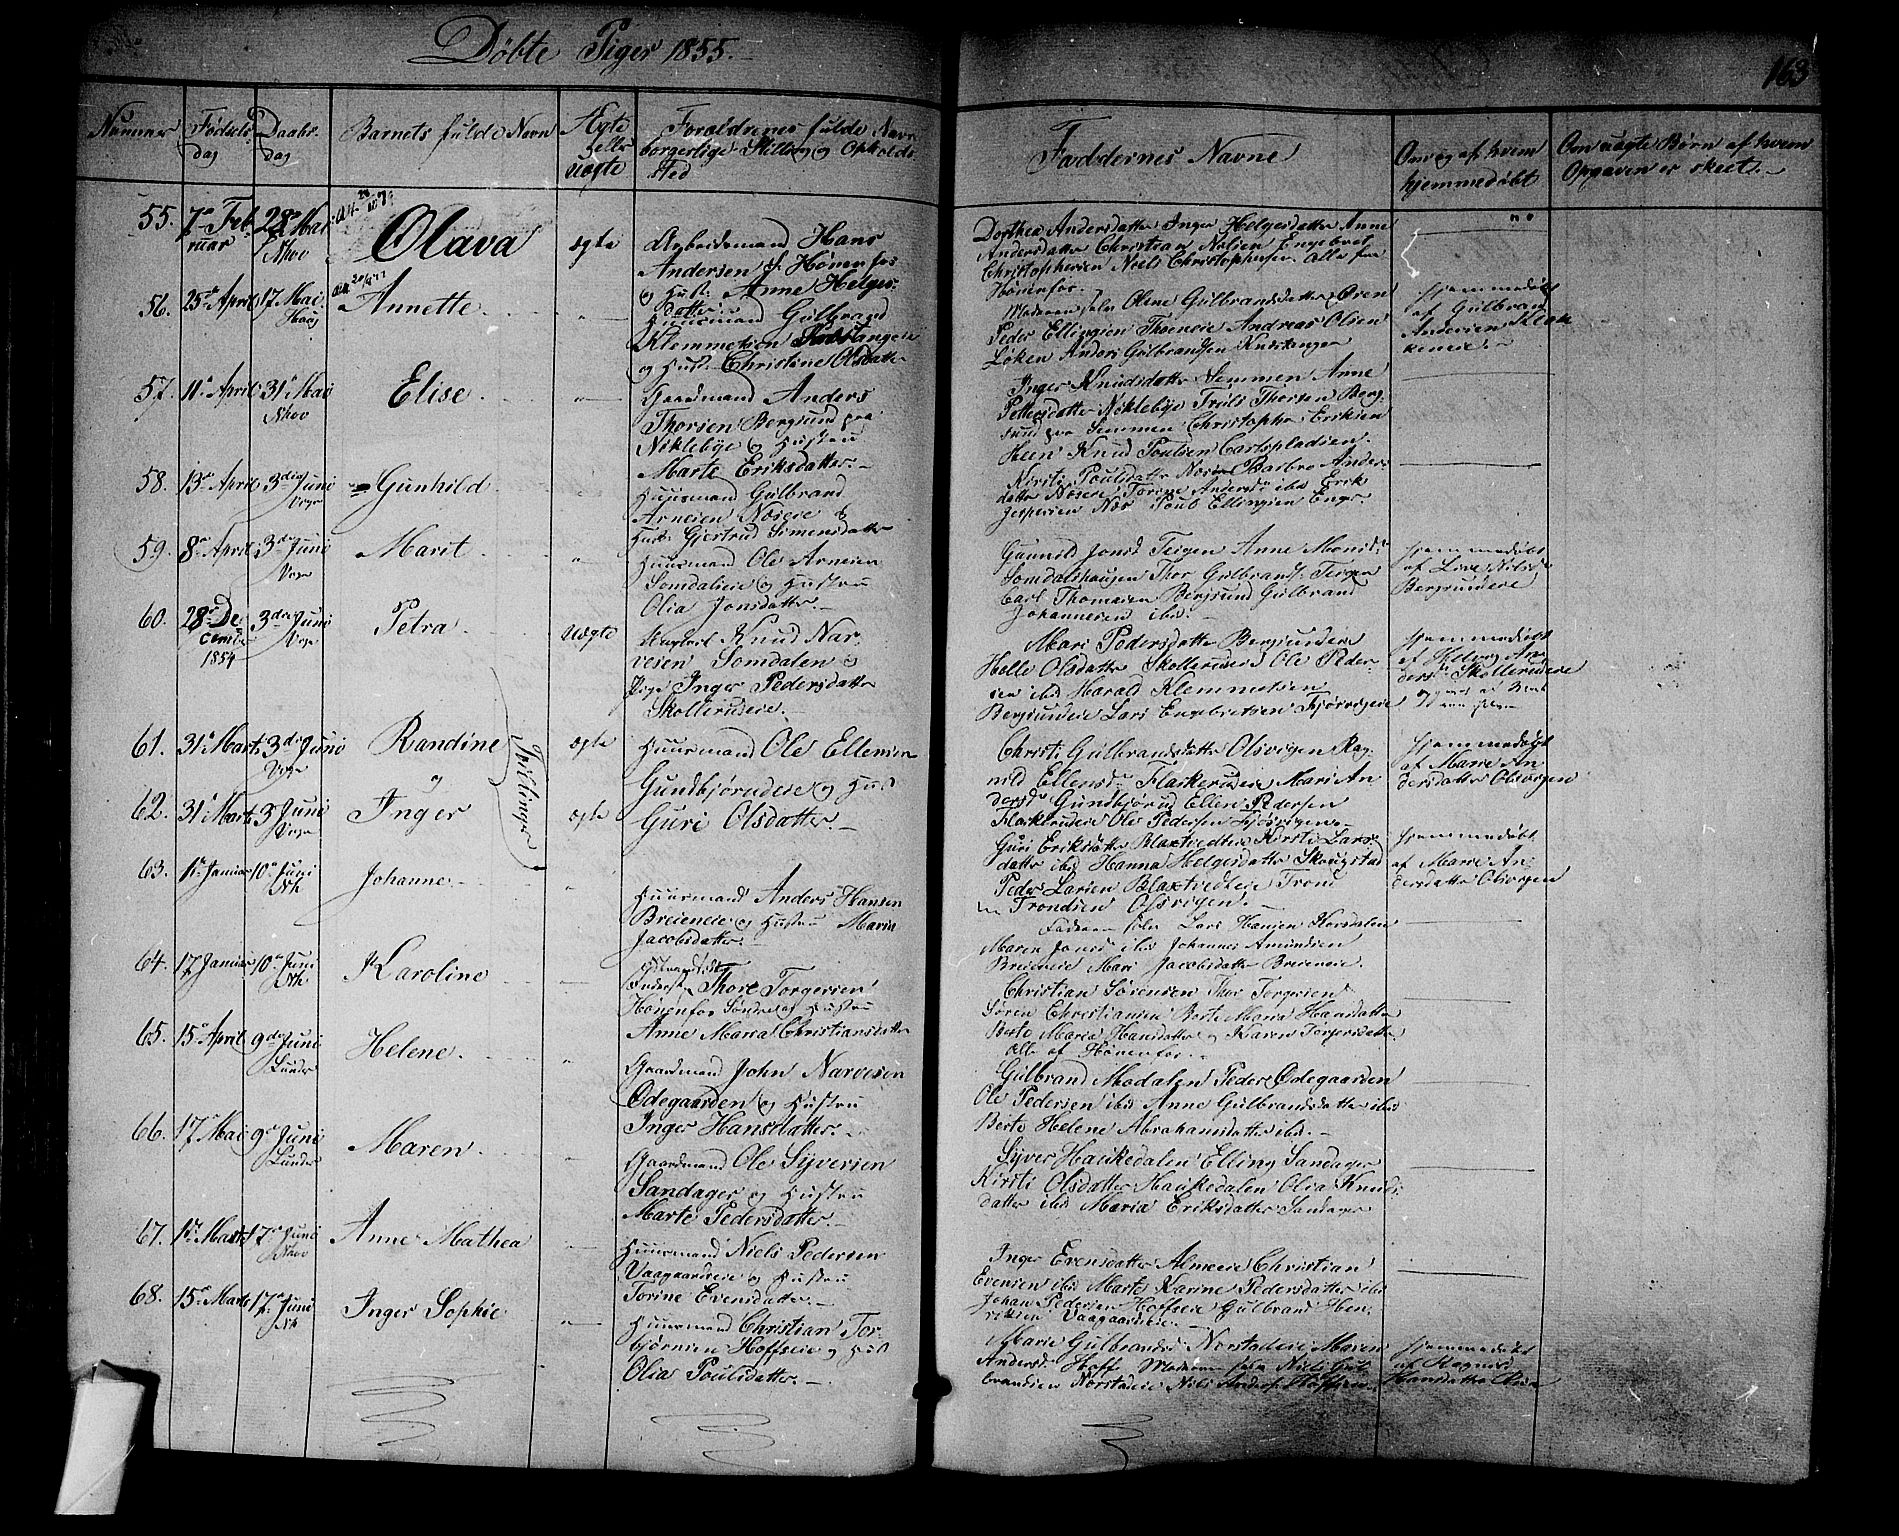 Døbte Piger 1855.
163
Nummer
Fødsels dag
Daabs dag
Barnets fulde Navn
Ægte eller uægte
Forældrenes fulde Navn
borgerlige Stilling og Opholds
sted
Faddernes Navne
Om og af hvem
hjemmedøbt
Om uægte Børn af hvem
Opgaven er skeet.
55. 7de Feb
ruar
28de Mai
Nhov
Olava
ægte
Arbeidsmand Hans
Andersen Hønenfos
og Hust. Anne Helges
datter.
Dorthea Andersdatter Inger Helgesdatter Anne
Andersdatter Christian Nilsen Engebret
Christophersen Niels Christophersen Alle fra
Hønenfos.
56. 25de April 17 Mai
Haug
Annette
Huusmand Gulbrand
Klemmetsen
og Hust. Christine Olsdatter
Moderen selv Olene Gulbrandsdatter
Peder Ellingsen Andreas Olsen
Løken Anders Gulbrandsen
hjemmedøbt
af Gulbrand
Andersen
57. 11te April 31te Mai
Nhov
Elise
Gaardmand Anders
Thorsen Bergsund paa
Niklebye og Hustru
Marte Eriksdatter.
Inger Knudsdatter Semmen Anne
Pettersdatter Niklebye Truls Thorsen Berg
sund paa Semmen Christopher Eriksen
Heen Knud Poulsen
58. 13de April 3die Juni
Vege
Gunhild
Huusmand Gulbrand
Arnesen Noseie og
Hust. Gjertrud Simensdatter
Kirsti Poulsdatter Barbro Anders
datter Noseie Torine Andersd. ibid Erik
Jespersen Næs Poul Ellingsen Enger
59. 8de April 3die Juni
Vege
Marit
Huusmand Ole Arnesen
Somdalseie og Hustru
Olia Jonsdatter.
Gunnild Jonsd. Teigen Anne Monsd.
Somdalshaugen Thor Gulbrands. Teigen
Carl Thomasen Bergsund Gulbrand
Johannesen ibid.
hjemmedøbt
af Live Nilsd.
Bergsundeie
60. 28de De
cember
1854
3die Juni
Vege
Petra
uægte
Ungkarl Knud Nar
vesen Somdalen og
Pige Inger Pedersdatter
Skollerudeie.
Mari Pedersdatter Bergsundeie
Helle Olsdatter Skollerud Ole Peder
sen ibid Harald Klemmetsen
Bergsundeie Lars Engebretsen Fjørvigeie
hjemmedøbt
af Helvig An
dersd. Skollerudeie
61. 31te Marts 3die Juni
Vege
Randine
og
Tvillinger
ægte
Huusmand Ole Ellensen
Gundbjørudeie og Hust
Christi Gulbrandsdatter Olsvigen Rag
nild Ellensd. Flaskerudeie Mari An
dersd. Gundbjørud Ellen Pedersen
Flaskerudeie Ole Pedersen Fjørvigen.
hjemmedøbt
af Marie An
dersdatter Olsvigen
62. 31te Marts 3 Juni
Vege
Inger
ægte
Guri Olsdatter.
Guri Eriksdatter Blaxtvedteie Kirsti Lars
datter ibid Hanna Helgesdatter Skaugstad
Peder Larsen Blaxtvedteie Trond
Trondsen Olsvigen.
hjemmedøbt
af Marie An
dersdatter Olsvigen
63. 1te Januar 10de Juni
Johanne
Huusmand Anders Hansen
Breieneie og Hustru Maria
Jacobsdatter.
Faderen selv Lars Hansen
Maren Jonsd. ibid Johannes Amundsen
Breieneie Mari Jacobsdatter Breieneie.
64. 17 Januar 10de Juni
Karoline
Thore Torgersen
Hønenfos Søndre og Hustru
Anne Maria Christiansdatter
Christian Sørensen Thor Torgersen
Søren Christiansen Berte Maria Hansdatter
Berte Maria Hansdatter Karen Torgersdatter
Alle af Hønenfos.
65. 15de April 9de Juni
Lunder
Helene
Gaardmand John Narvesen
Ødegaarden og Hustru
Inger Hansdatter.
Gulbrand Modalen Peder Ødegaarden
Ole Pedersen ibid Anne Gulbrandsdatter ibid
Berte Helene Abrahamsdatter ibid.
66. 17 Mai 9de Juni
Lunder
Maren
Gaardmand Ole Syversen
Sandager og Hustru
Marte Pedersdatter.
Syver Haukedalen Elling Sandager
Kirsti Olsdatter Haukedalen Olia Knuds
datter ibid Maria Eriksdatter Sandager
67. 1te Marts 17de Juni
Nhov
Anne Mathea
Huusmand Niels Pedersen
Vaagaardseie og Hustru
Torine Evensdatter.
Inger Evensdatter Almeie Christian
Evensen ibid Marte Karine Pedersdatter ibid
Johan Pedersen Hoffseie Gulbrand Hen
riksen Vaagaardseie.
68. 15de Marts 17de Juni
Inger Sophie
Huusmand Christian Tor
bjørnsen Hoffseie og Hust
Olia Poulsdatter.
Marie Gulbrandsd. Norstadeie Maren
Andersd. Hoff Moderen selv Niels Gul
brandsen Norstadeie Nils Anders. Hoffseie.
hjemmedøbt
af Ragnild
Hansdatter